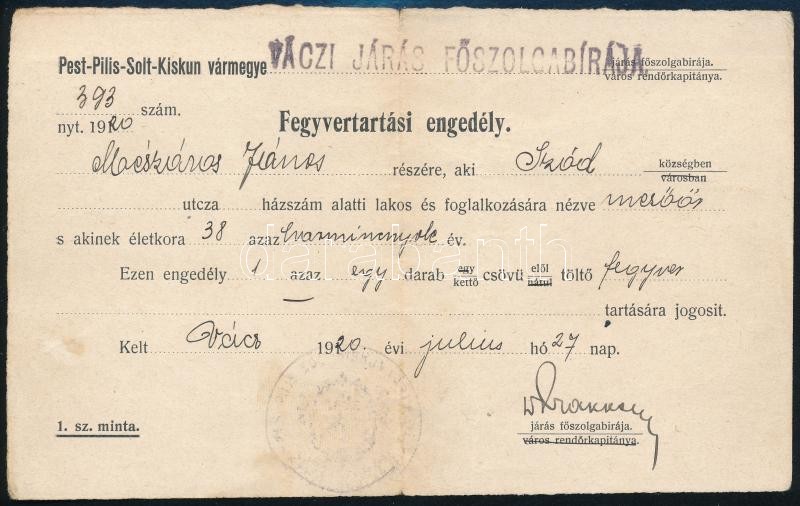 Pest-Pilis-Solt-Kiskun vármegye VÁCZI JÁRÁS FŐSZOLGABÍRÁJA.
járás főszolgabirája.
város rendőrkapitánya.
393 szám.
nyt. 1920
Fegyvertartási engedély.
Mészáros János részére, aki Sződ községben
városban
utcza házszám alatti lakos és foglalkozására nézve
s akinek életkora 38 azaz harmincnyolc év.
Ezen engedély 1 azaz egy darab egy kettő csövü elől hátul töltő fegyver
tartására jogosit.
Kelt Vács 1920. évi julius hó 27 nap.
1. sz. minta.
járás főszolgabirája.
város rendőrkapitánya.
darabanth